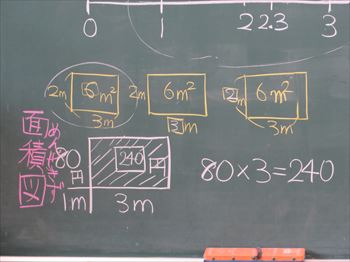 0 1 2 2.3 3
2m 6 m² 3m
2m 6m² 3m
2m 6m² 3m
面積図
めんせきず
80円 240円
1m 3m
80×3=240